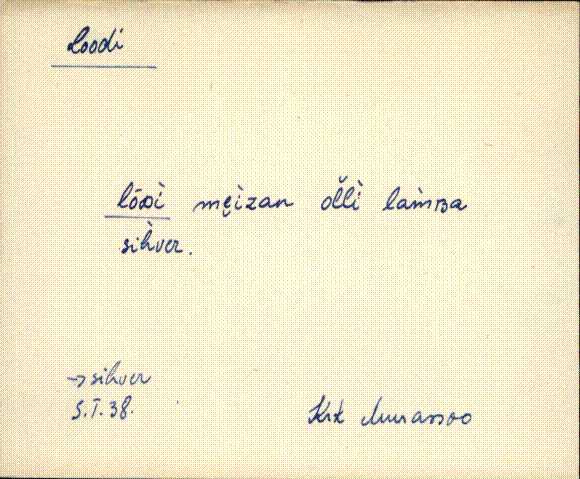 Loodi
lōᴅi męizan olli lamʙa
sihver.
→ sihver
5.I.38.
Krk Murasoo